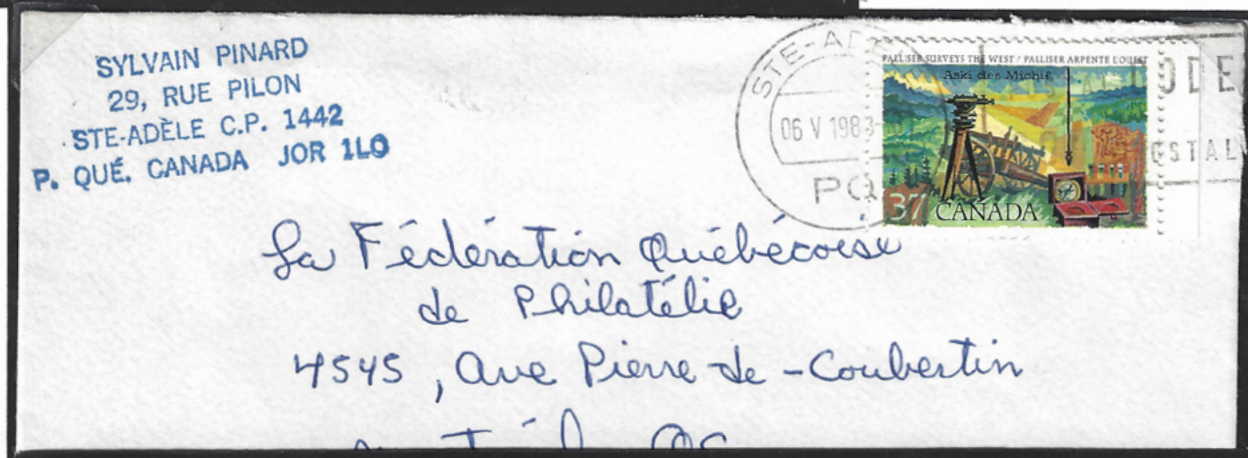 SYLVAIN PINARD
29, RUE PILON
STE-ADÈLE C.P. 1442
P. QUÉ. CANADA JOR 1LO
STE-AD
06 V 1988
PQ
PALLISER SURVEYS THE WEST / PALLISER ARPENTE L'OUEST
Aski des Michif
37 CANADA
ODE
OSTAL
La Fédération Québécoise
de Philatélie
4545, Ave Pierre-de-Coubertin